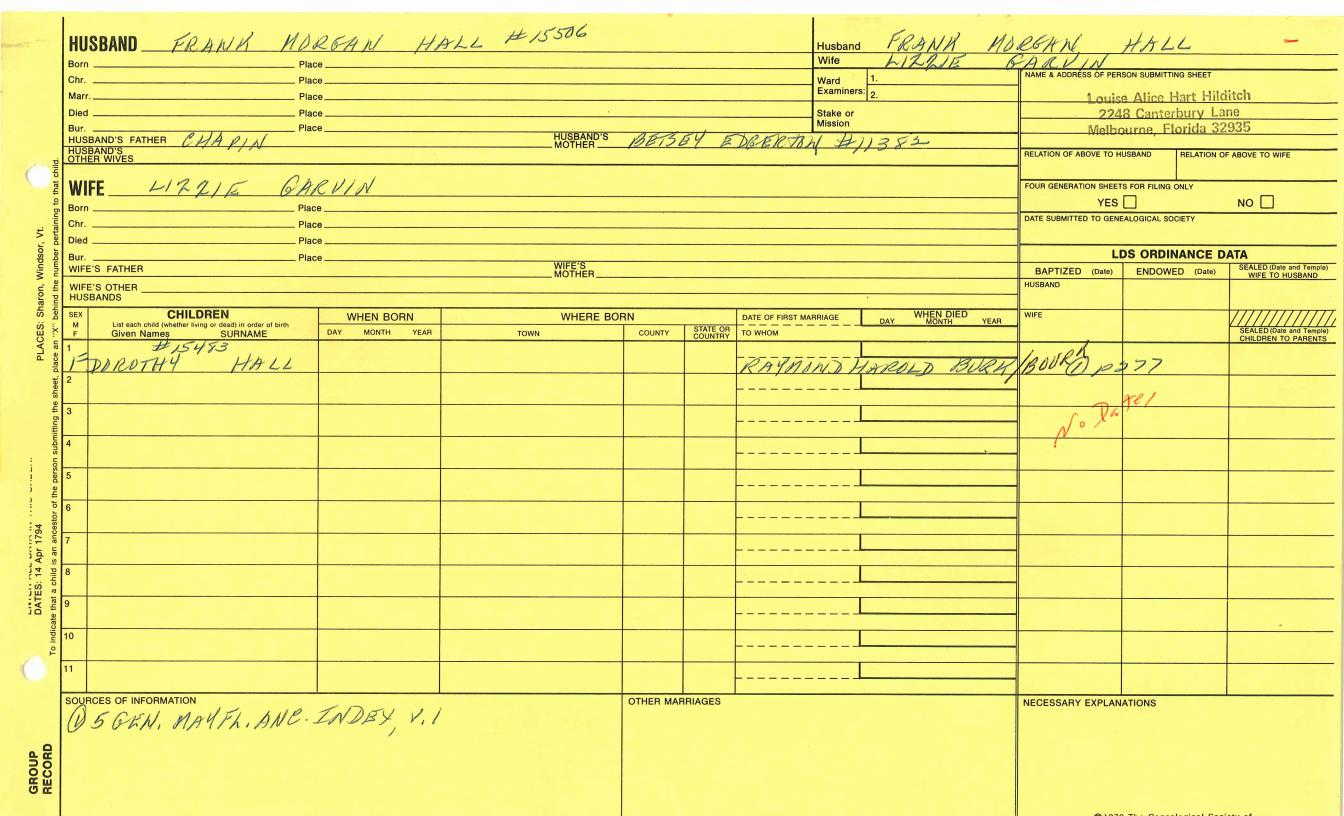 HUSBAND FRANK MORGAN HALL #15506
Born Place
Chr. Place
Marr. Place
Died Place
Bur. Place
HUSBAND'S FATHER CHAPIN HUSBAND'S MOTHER BETSEY EDGERTON #11382
HUSBAND'S OTHER WIVES
Husband FRANK MORGAN HALL
Wife LIZZIE GARVIN
Ward Examiners: 1.
2.
Stake or Mission
NAME & ADDRESS OF PERSON SUBMITTING SHEET
Louise Alice Hart Hilditch
2248 Canterbury Lane
Melbourne, Florida 32935
RELATION OF ABOVE TO HUSBAND RELATION OF ABOVE TO WIFE
FOUR GENERATION SHEETS FOR FILING ONLY
YES NO
DATE SUBMITTED TO GENEALOGICAL SOCIETY
WIFE LIZZIE GARVIN
Born Place
Chr. Place
Died Place
Bur. Place
WIFE'S FATHER WIFE'S MOTHER
WIFE'S OTHER HUSBANDS
LDS ORDINANCE DATA
BAPTIZED (Date) ENDOWED (Date) SEALED (Date and Temple) WIFE TO HUSBAND
HUSBAND
WIFE
SEALED (Date and Temple) CHILDREN TO PARENTS
SEX M F
CHILDREN
List each child (whether living or dead) in order of birth
Given Names SURNAME
WHEN BORN
DAY MONTH YEAR
WHERE BORN
TOWN COUNTY STATE OR COUNTRY
DATE OF FIRST MARRIAGE
TO WHOM
WHEN DIED
DAY MONTH YEAR
1 #15493
F DOROTHY HALL RAYMOND HAROLD BURK/BOURK ① P277
2
3
No Dates
4
5
6
7
8
9
10
11
SOURCES OF INFORMATION
① 5 GEN. MAYFL. ANC. INDEX, V.1
OTHER MARRIAGES
NECESSARY EXPLANATIONS
PLACES: Sharon, Windsor, Vt.
DATES: 14 Apr 1794
To indicate that a child is an ancestor of the person submitting the sheet, place an "X" behind the number pertaining to that child.
GROUP RECORD